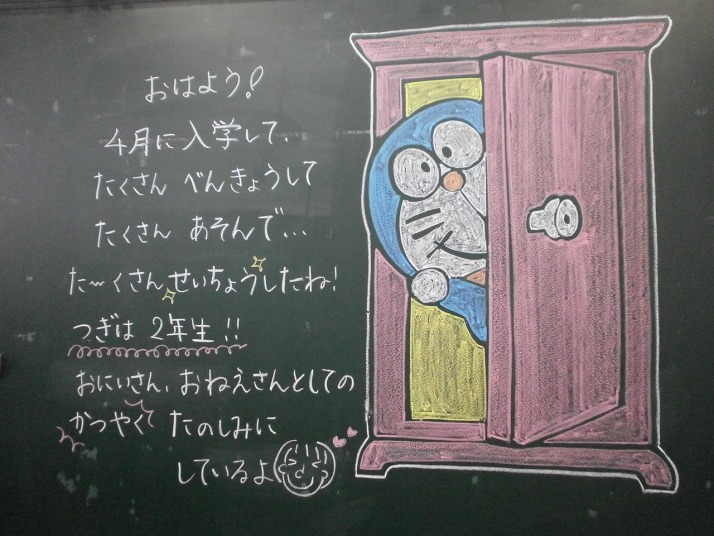 おはよう!
4月に入学して、
たくさん べんきょうして
たくさん あそんで…
た〜くさんせいちょうしたね!
つぎは 2年生!!
おにいさん、おねえさんとしての
かつやく たのしみに
しているよ